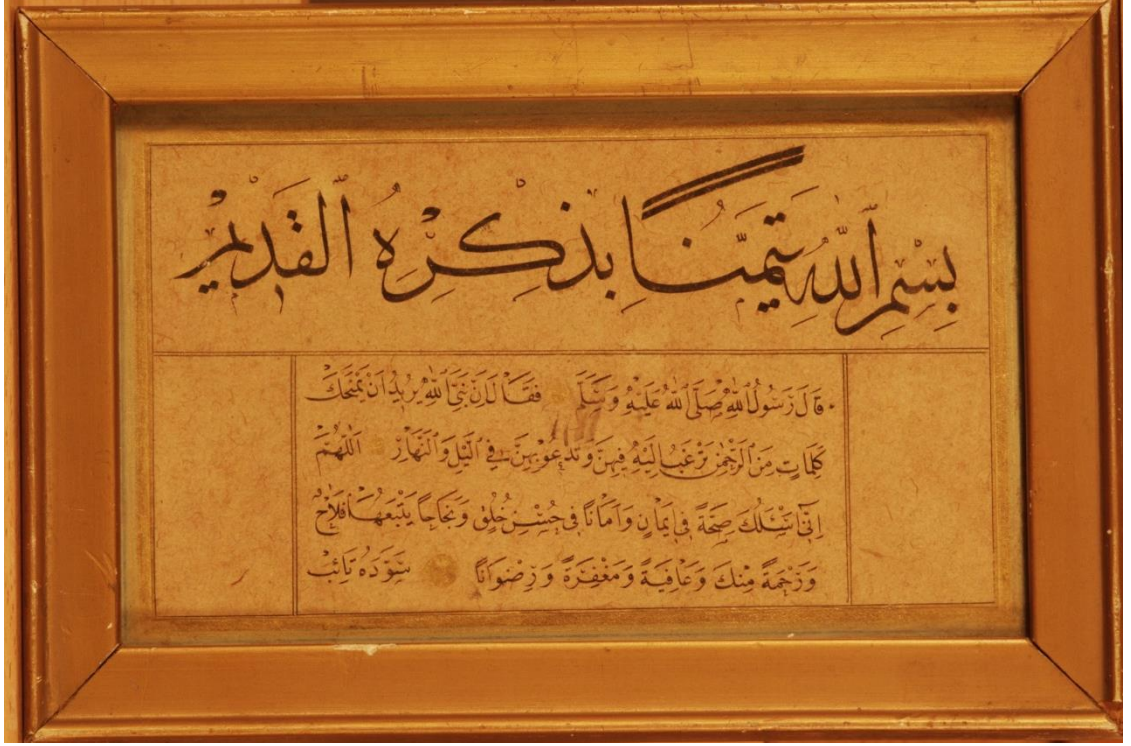 بِسْمِ ٱللّٰهِ تَيَمُّنًا بِذِكْرِهِ ٱلْقَدِيْمِ
قَالَ رَسُولُ اللّٰهِ صَلَّى اللّٰهُ عَلَيْهِ وَسَلَّمَ فَقَالَ اِنَّ نَبِيَّ اللّٰهِ يُرِيدُ اَنْ يَمْنَحَكَ
كَلِمَاتٍ مِنَ الرَّحْمٰنِ تَرْغَبُ اِلَيْهِ فِيهِنَّ وَتَدْعُو بِهِنَّ فِي الَّيْلِ وَالنَّهَارِ اَللّٰهُمَّ
اِنِّي اَسْئَلُكَ صِحَّةً فِي اِيمَانٍ وَاِمَانًا فِي حُسْنِ خُلُقٍ وَنَجَاحًا يَتْبَعُهَا فَلَاحٌ
وَرَحْمَةً مِنْكَ وَعَافِيَةً وَمَغْفِرَةً وَرِضْوَانًا سَوَّدَهُ تَائِبْ